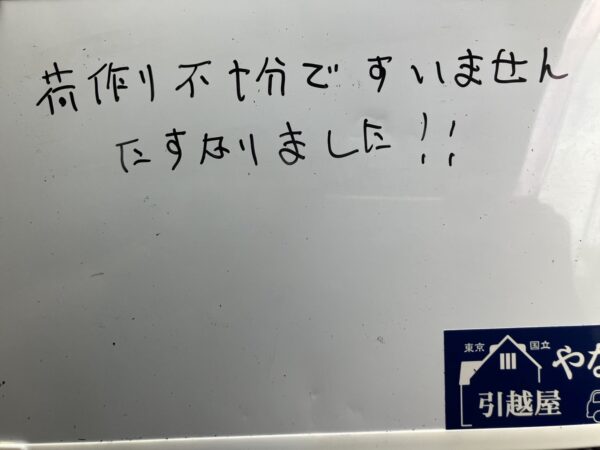 荷作り不十分ですいません
たすかりました!!
東京 国立
やな
引越屋